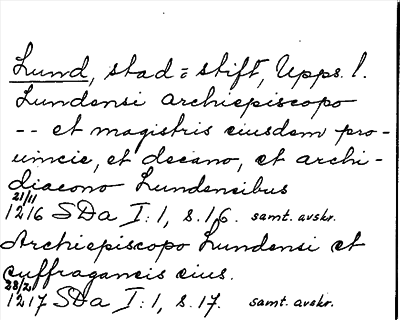 Lund, stad = stift, Upps. l.
Lundensi archiepiscopo
-- et magistris eiusdem pro-
uincie, et decano, et archi-
diacono Lundensibus
21/11
1216 SDa I:1, s.16. samt. avskr.
Archiepiscopo Lundensi et
suffraganeis eius.
23/2
1217 SDa I:1, s.17. samt. avskr.